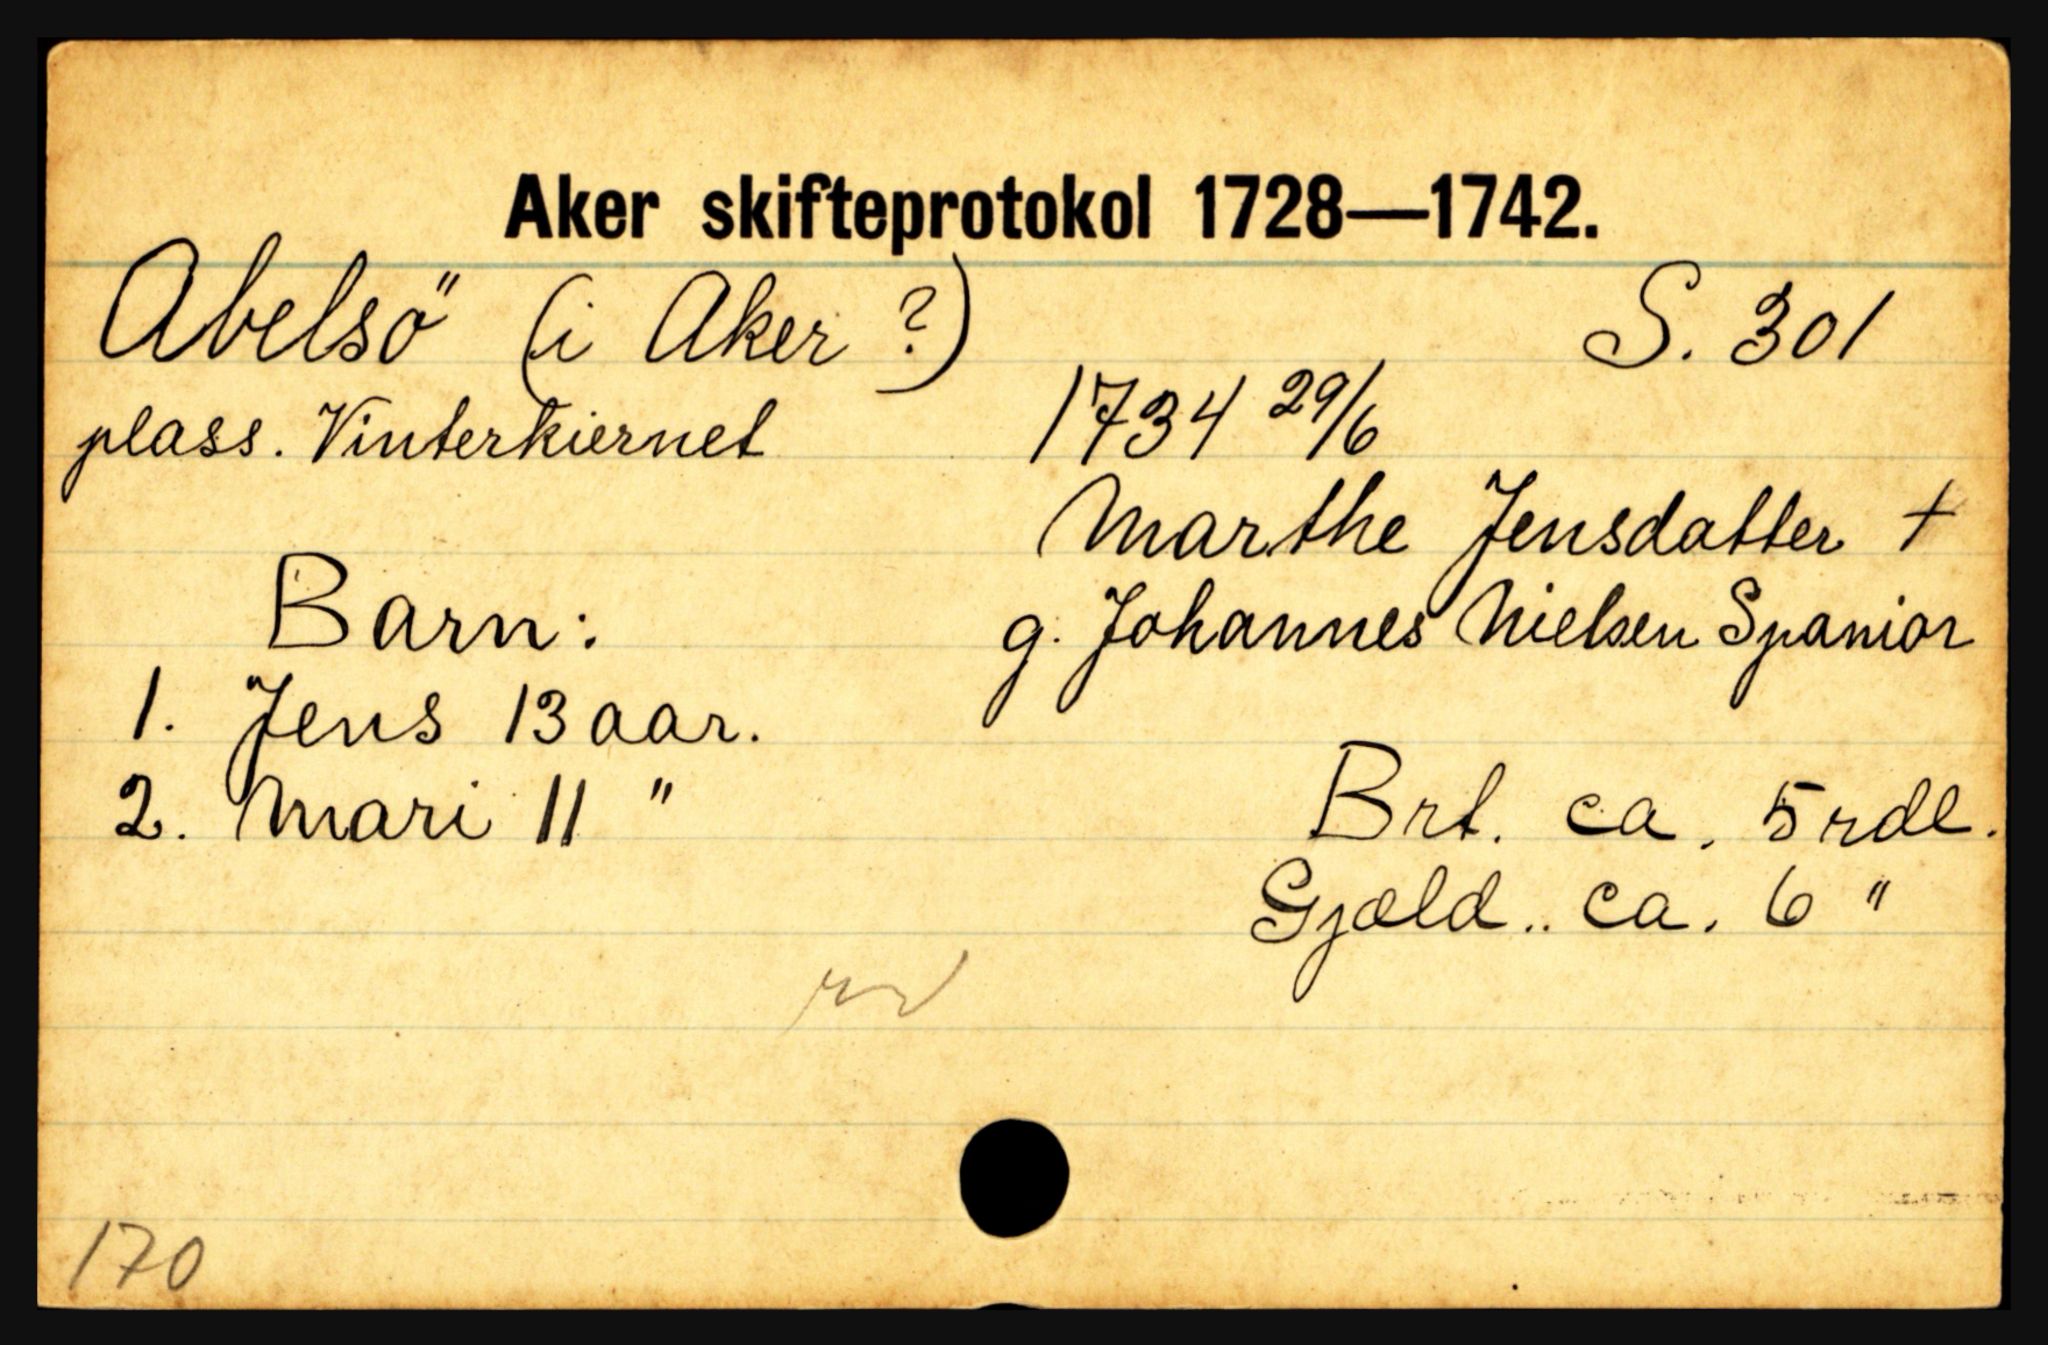 Aker skifteprotokol 1728—1742.
Abelsö (i Aker ?) S. 301
plass. Vinterkiernet 1734 29/6
Marthe Jensdatter +
g. Johannes Nielsen Spanior
Barn:
1. Jens 13 aar.
2. Mari 11 "
Brt. ca. 5 rdl.
Gjæld .. ca. 6 "
170